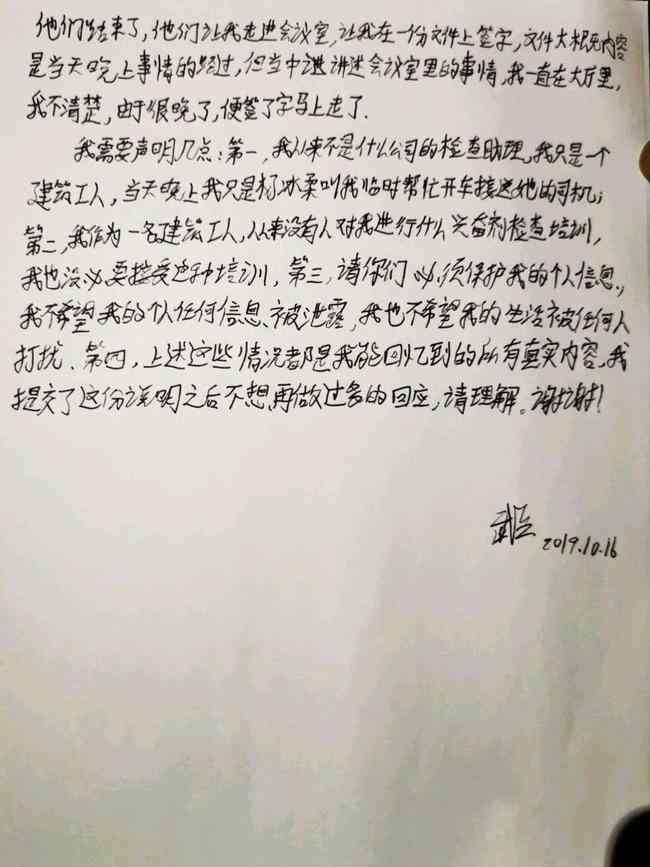 他们结束了，他们让我走进会议室，让我在一份文件上签字，文件大概内容
是当天晚上事情的经过，但当中讲述会议室里的事情，我一直在大厅里，
我不清楚，由于很晚了，便签了字马上走了．
我需要声明几点：第一，我从来不是什么公司的检查助理，我只是一个
建筑工人，当天晚上我只是杨冰柔叫我临时帮忙开车接送她的司机；
第二，我作为一名建筑工人，从来没有人对我进行什么兴奋剂检查培训，
我也没必要接受这种培训，第三，请你们必须保护我的个人信息，
我不希望我的个人任何信息被泄露，我也不希望我的生活被任何人
打扰．第四，上述这些情况都是我能回忆到的所有真实内容，我
提交了这份说明之后不想再做过多的回应，请理解。谢谢！
2019.10.16